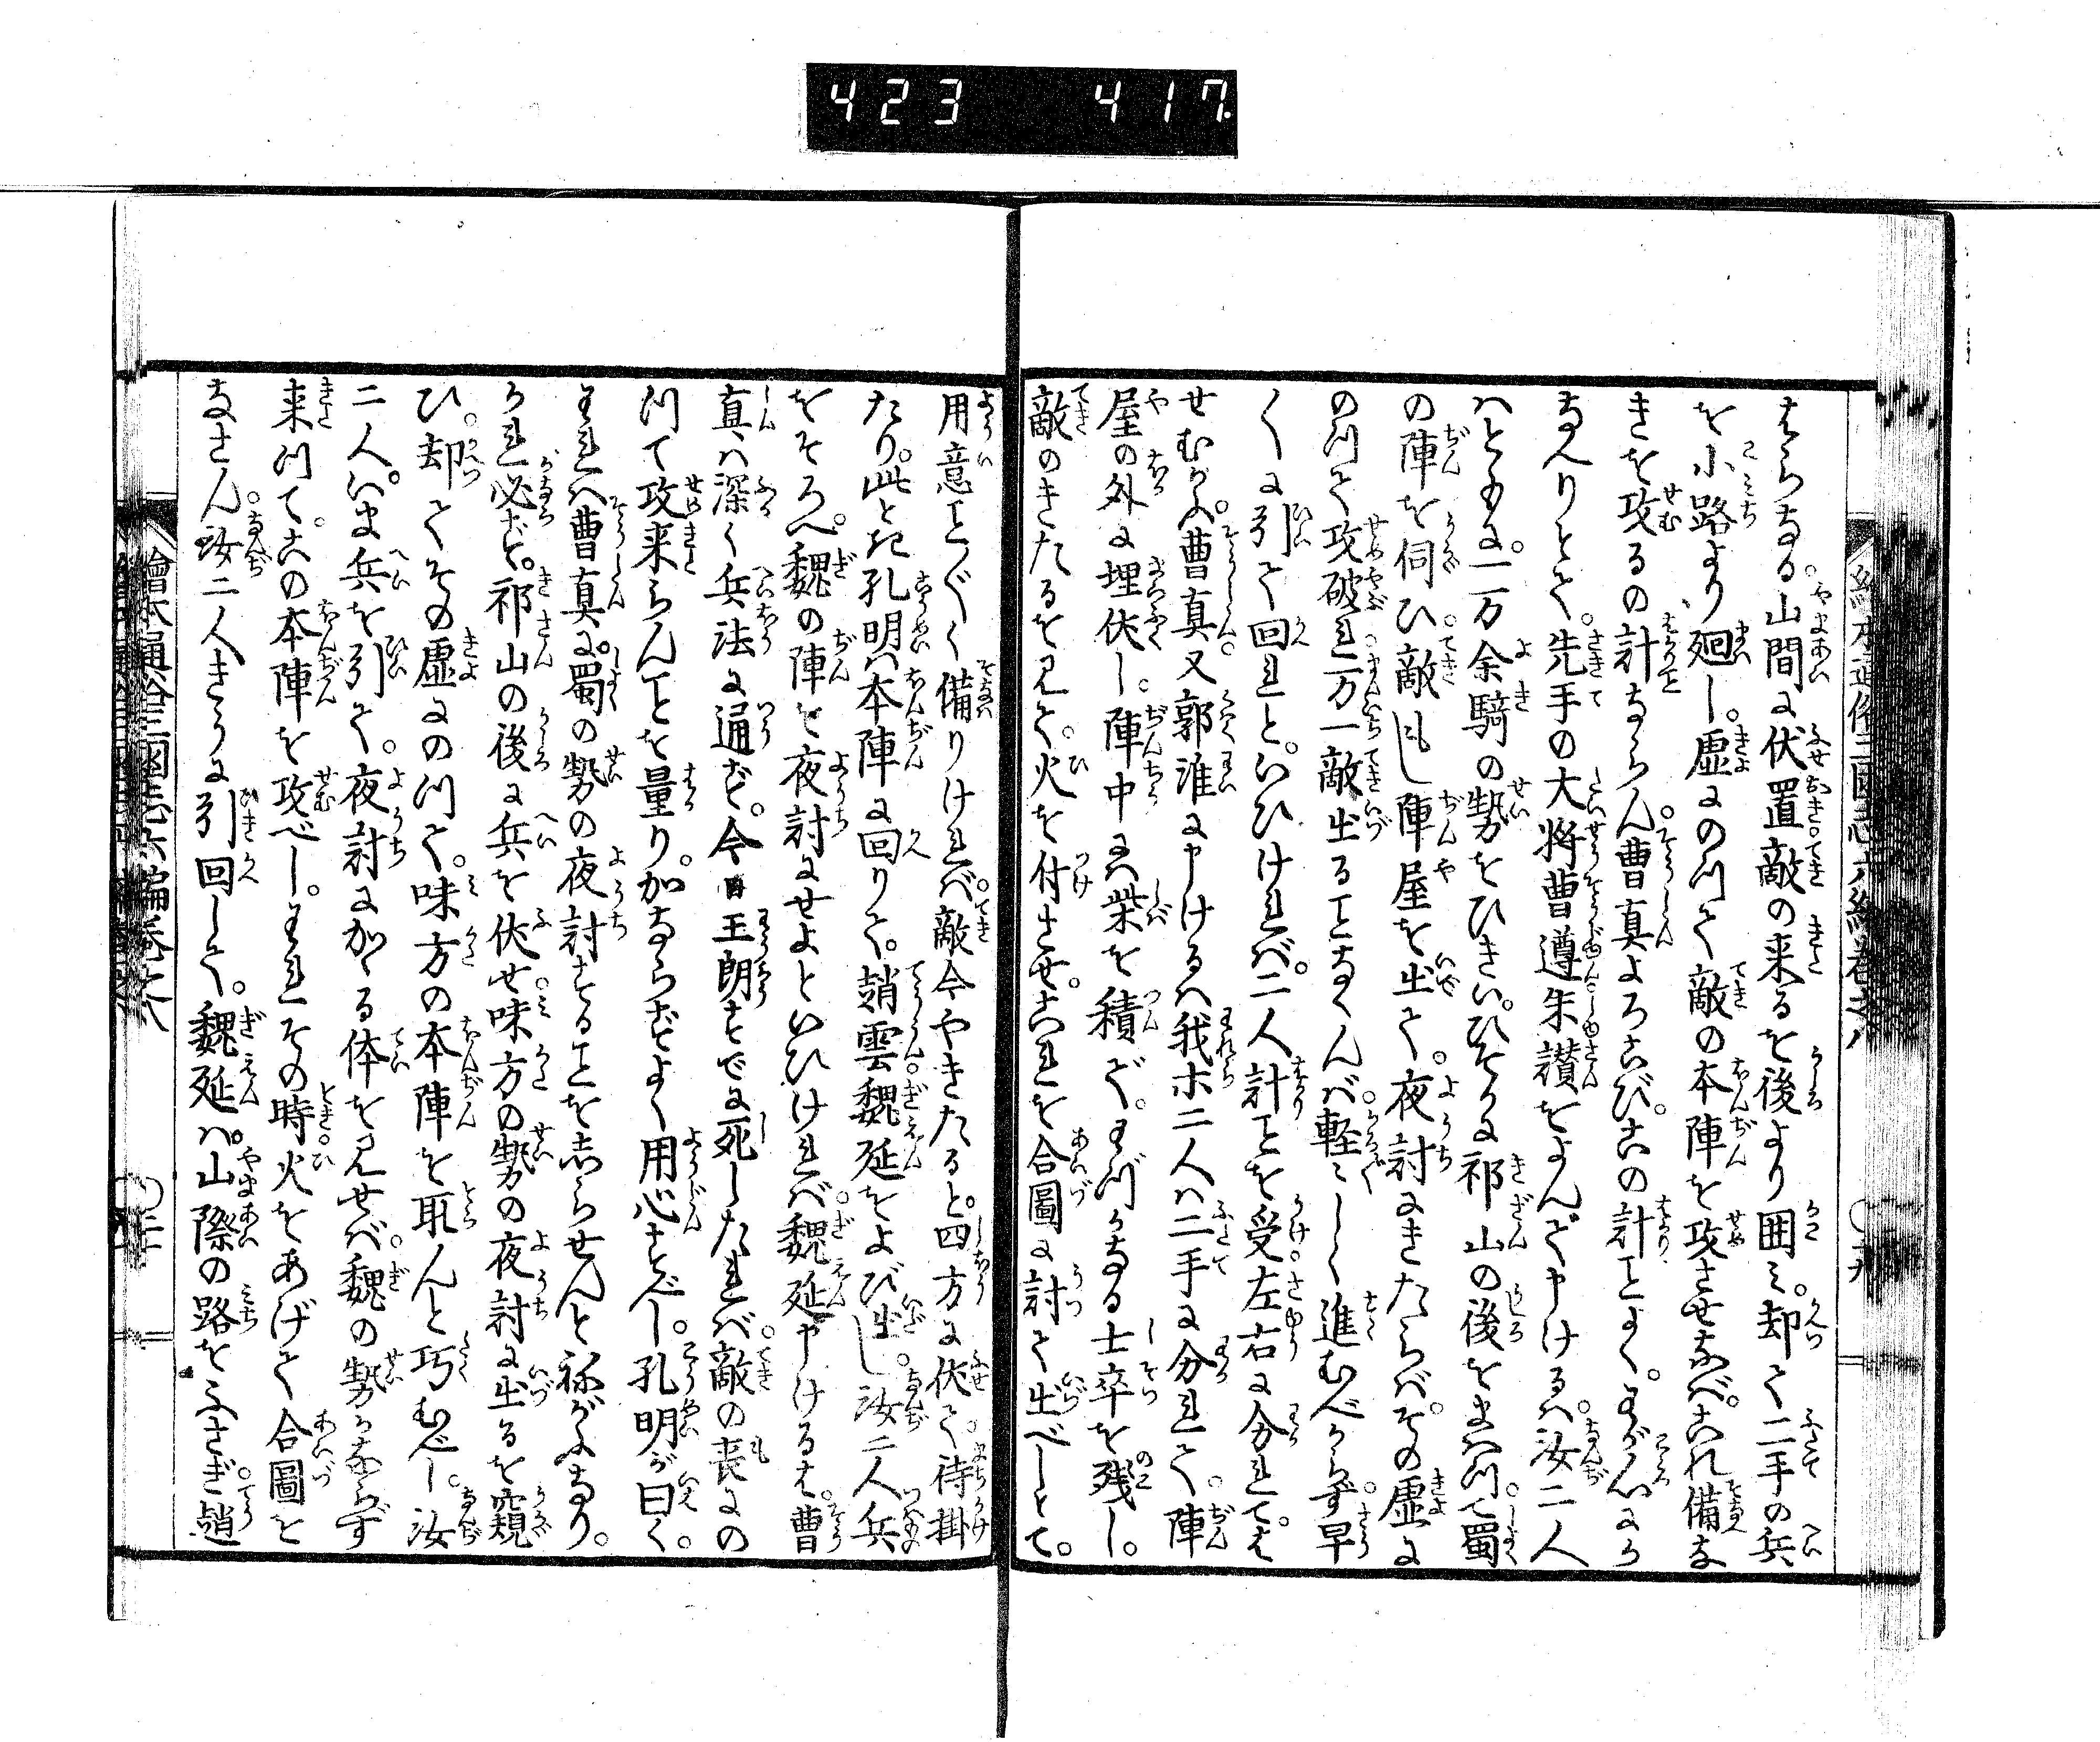 423 417
繪本通俗三國志六編卷之八 ○十九
はらなる。山間に伏置。敵の来るを後より囲み。却て二手の兵
を小路より廻し。虚にのつて敵の本陣を攻させなば。これ備な
きを攻るの計ならん。曹真よろこび。この計ことよく。わが心にか
なへりとて。先手の大将曹遵朱讃をよんで申けるは。汝二人
はともに。一万余騎の勢をひきい。ひそかに祁山の後をまはつて蜀
の陣を伺ひ。敵もし陣屋を出て。夜討にきたらば。その虚に
のつて攻破れ。万一敵出ることなくんば。軽々しく進むべからず。早
く引て回れと。いひければ。二人計ことを受。左右に分れては
せむかふ。曹真又郭淮に申けるは我ホ二人は二手に分れて。陣
屋の外に埋伏し。陣中には柴を積で。わづかなる士卒を残し。
敵のきたるを見て。火を付させ。これを合圖に討て出べしとて。
用意ことごとく備りければ。敵今やきたると。四方に伏て待掛
たり。此とき孔明は本陣に回りて。趙雲魏延をよび出し。汝二人兵
をそろへ。魏の陣を夜討にせよといひければ。魏延申けるは。曹
真は深く兵法に通ず。今日王朗すでに死したれば。敵の喪にの
つて攻来らんことを量り。かならずよく用心すべし。孔明が曰く。
われは曹真に。蜀の勢の夜討することをしらせんと祢がふなり。
かれ必ず。祁山の後に兵を伏せ。味方の勢の夜討に出るを窺
ひ。却てその虚にのつて。味方の本陣を取んと巧むべし。汝
二人。いま兵を引て。夜討にかゝる体を見せば。魏の勢かならず
来つて。この本陣を攻べし。われその時。火をあげて合圖と
なさん。汝二人きうに引回して。魏延は。山際の路をふさぎ。趙
繪本通俗三國志六編卷之八 ○二十